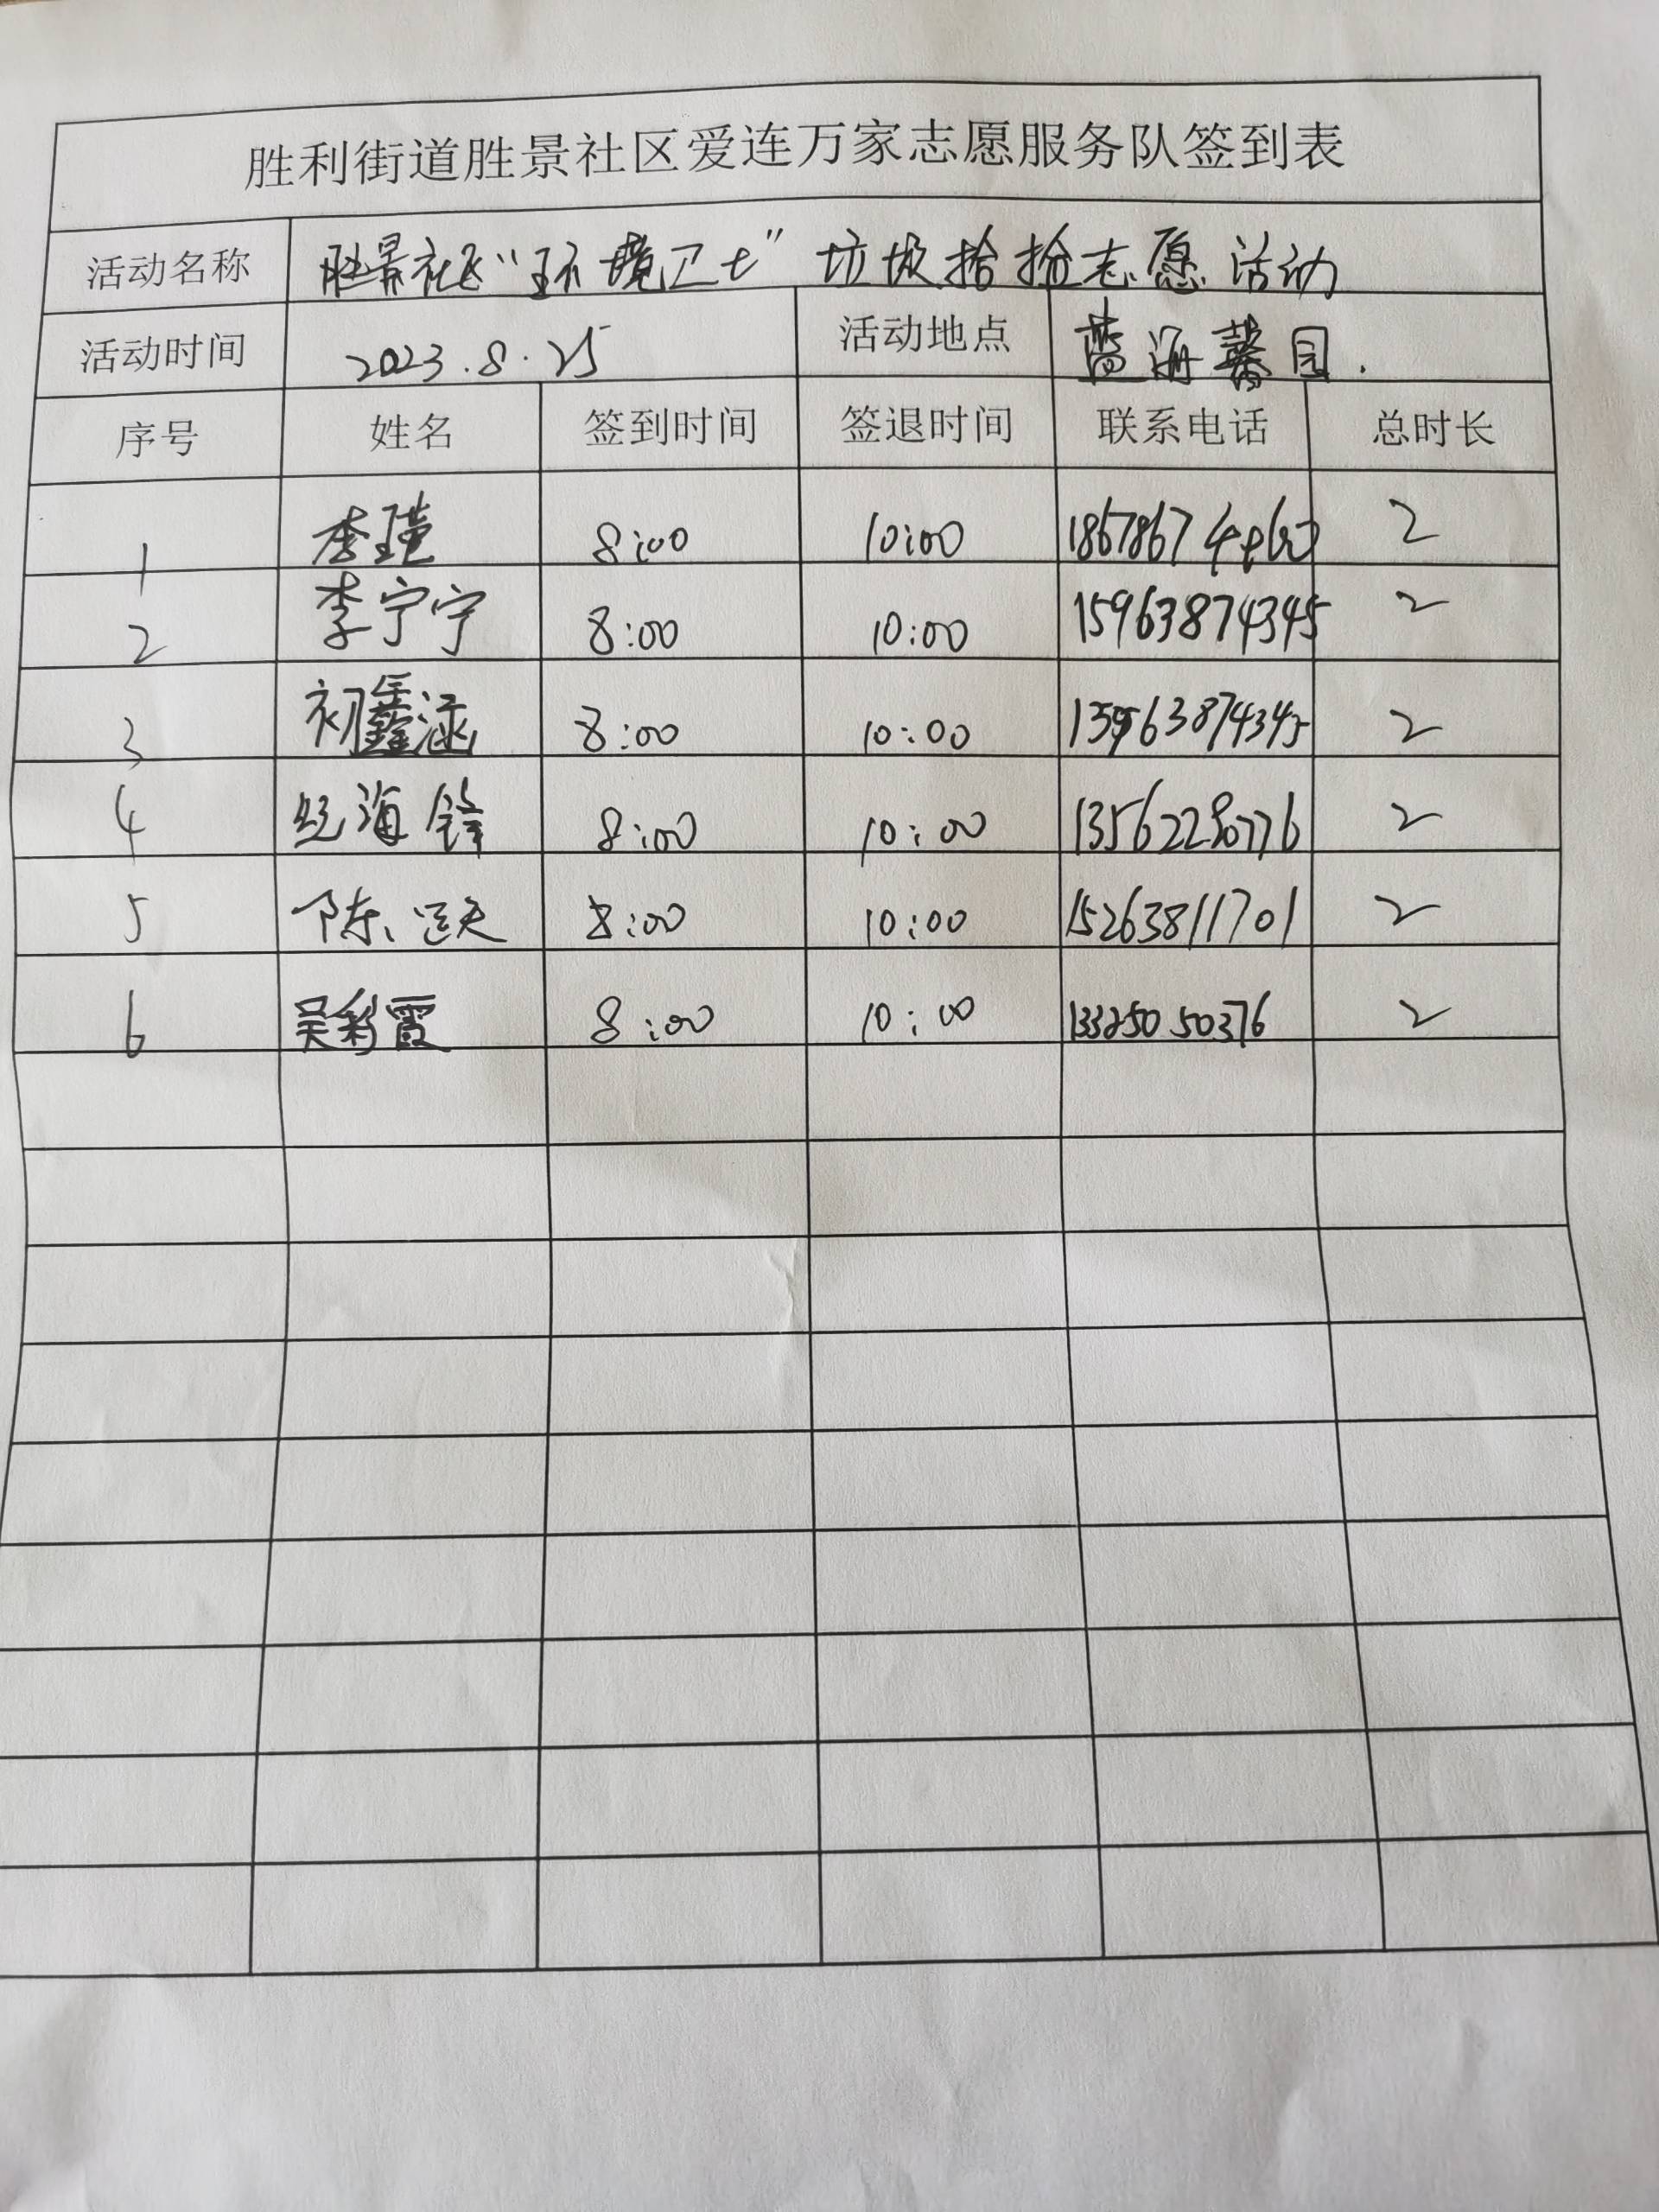 胜利街道胜景社区爱连万家志愿服务队签到表
活动名称 胜景社区“环境卫士”垃圾捡拾志愿活动
活动时间 2023.8.25 活动地点 蓝海馨园.
序号 姓名 签到时间 签退时间 联系电话 总时长
1 李 8:00 10:00 2
2 李宁宁 8:00 10:00 15963874345 2
3 初鑫涵 8:00 10:00 15963874345 2
4 纪海锋 8:00 10:00 2
5 陈 8:00 10:00 15263811701 2
6 吴彩霞 8:00 10:00 13325050376 2